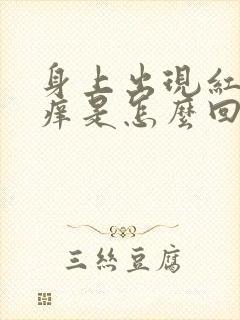 身上出現紅
痒是怎麼回
三絲豆腐